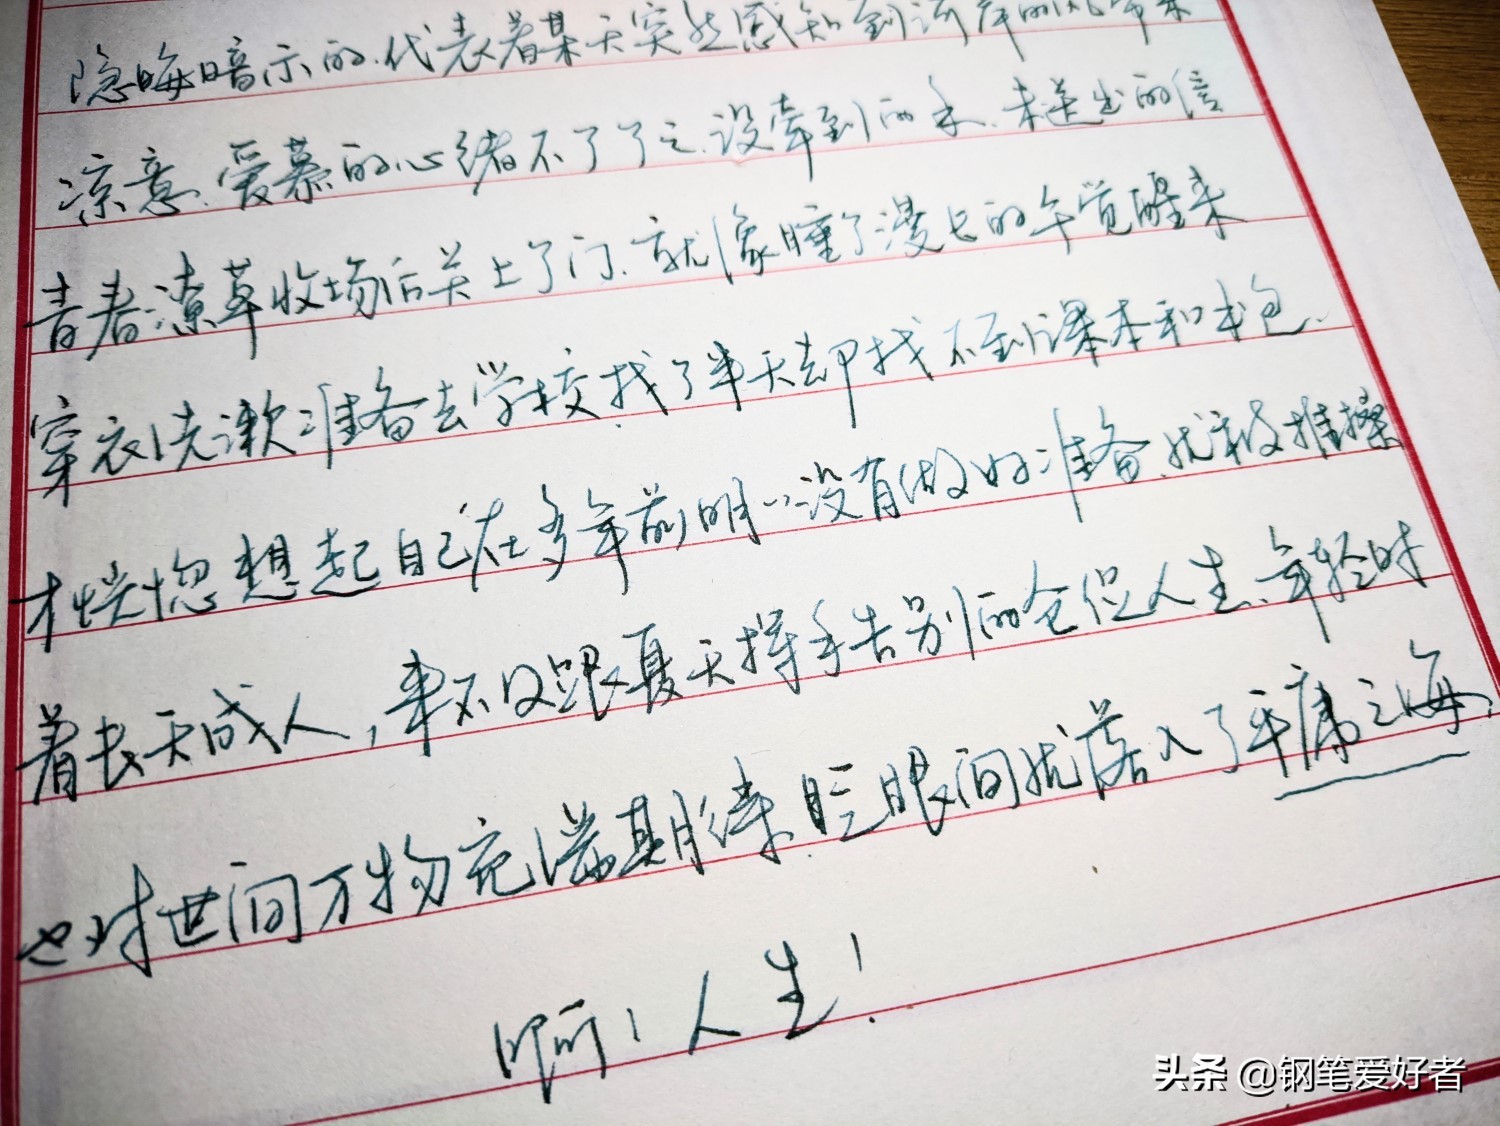 隐晦暗示的、代表着某天突然感知到河岸的风带来
凉意、爱慕的心绪不了了之、没牵到的手、未送出的信
青春潦草收场后关上了门、就像睡了漫长的午觉醒来
穿衣洗漱准备去学校、找了半天却找不到课本和书包、
才恍惚想起自己在多年前明明没有做好准备、就被推攘
着长大成人，来不及跟夏天挥手告别的仓促人生、年轻时
也对世间万物充满期待、眨眼间就落入了平庸之海、
啊！人生！
头条 @钢笔爱好者